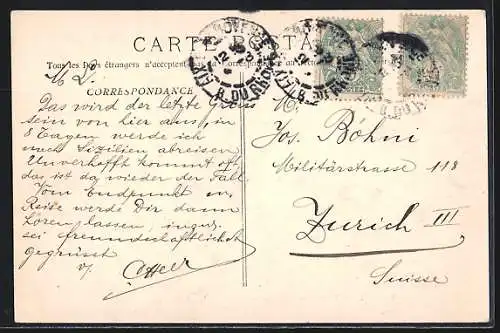 CARTE POSTALE
Tous les Pays étrangers n'acceptent
CORRESPONDANCE
M. L.
Das wird der letzte Gruss
sein von hier aus, in
8 Tagen werde ich
nach Sizilien abreisen
Unverhofft kommt oft
das ist da wieder der Fall
Vom Endpunkt m.
Reise werde Dir dann
hören lassen,
sei freundschaftlichst
gegrüsst
v/
M.
Jos. Böhni
Militärstrasse 118
Zurich III
Suisse
B. DU RHONE